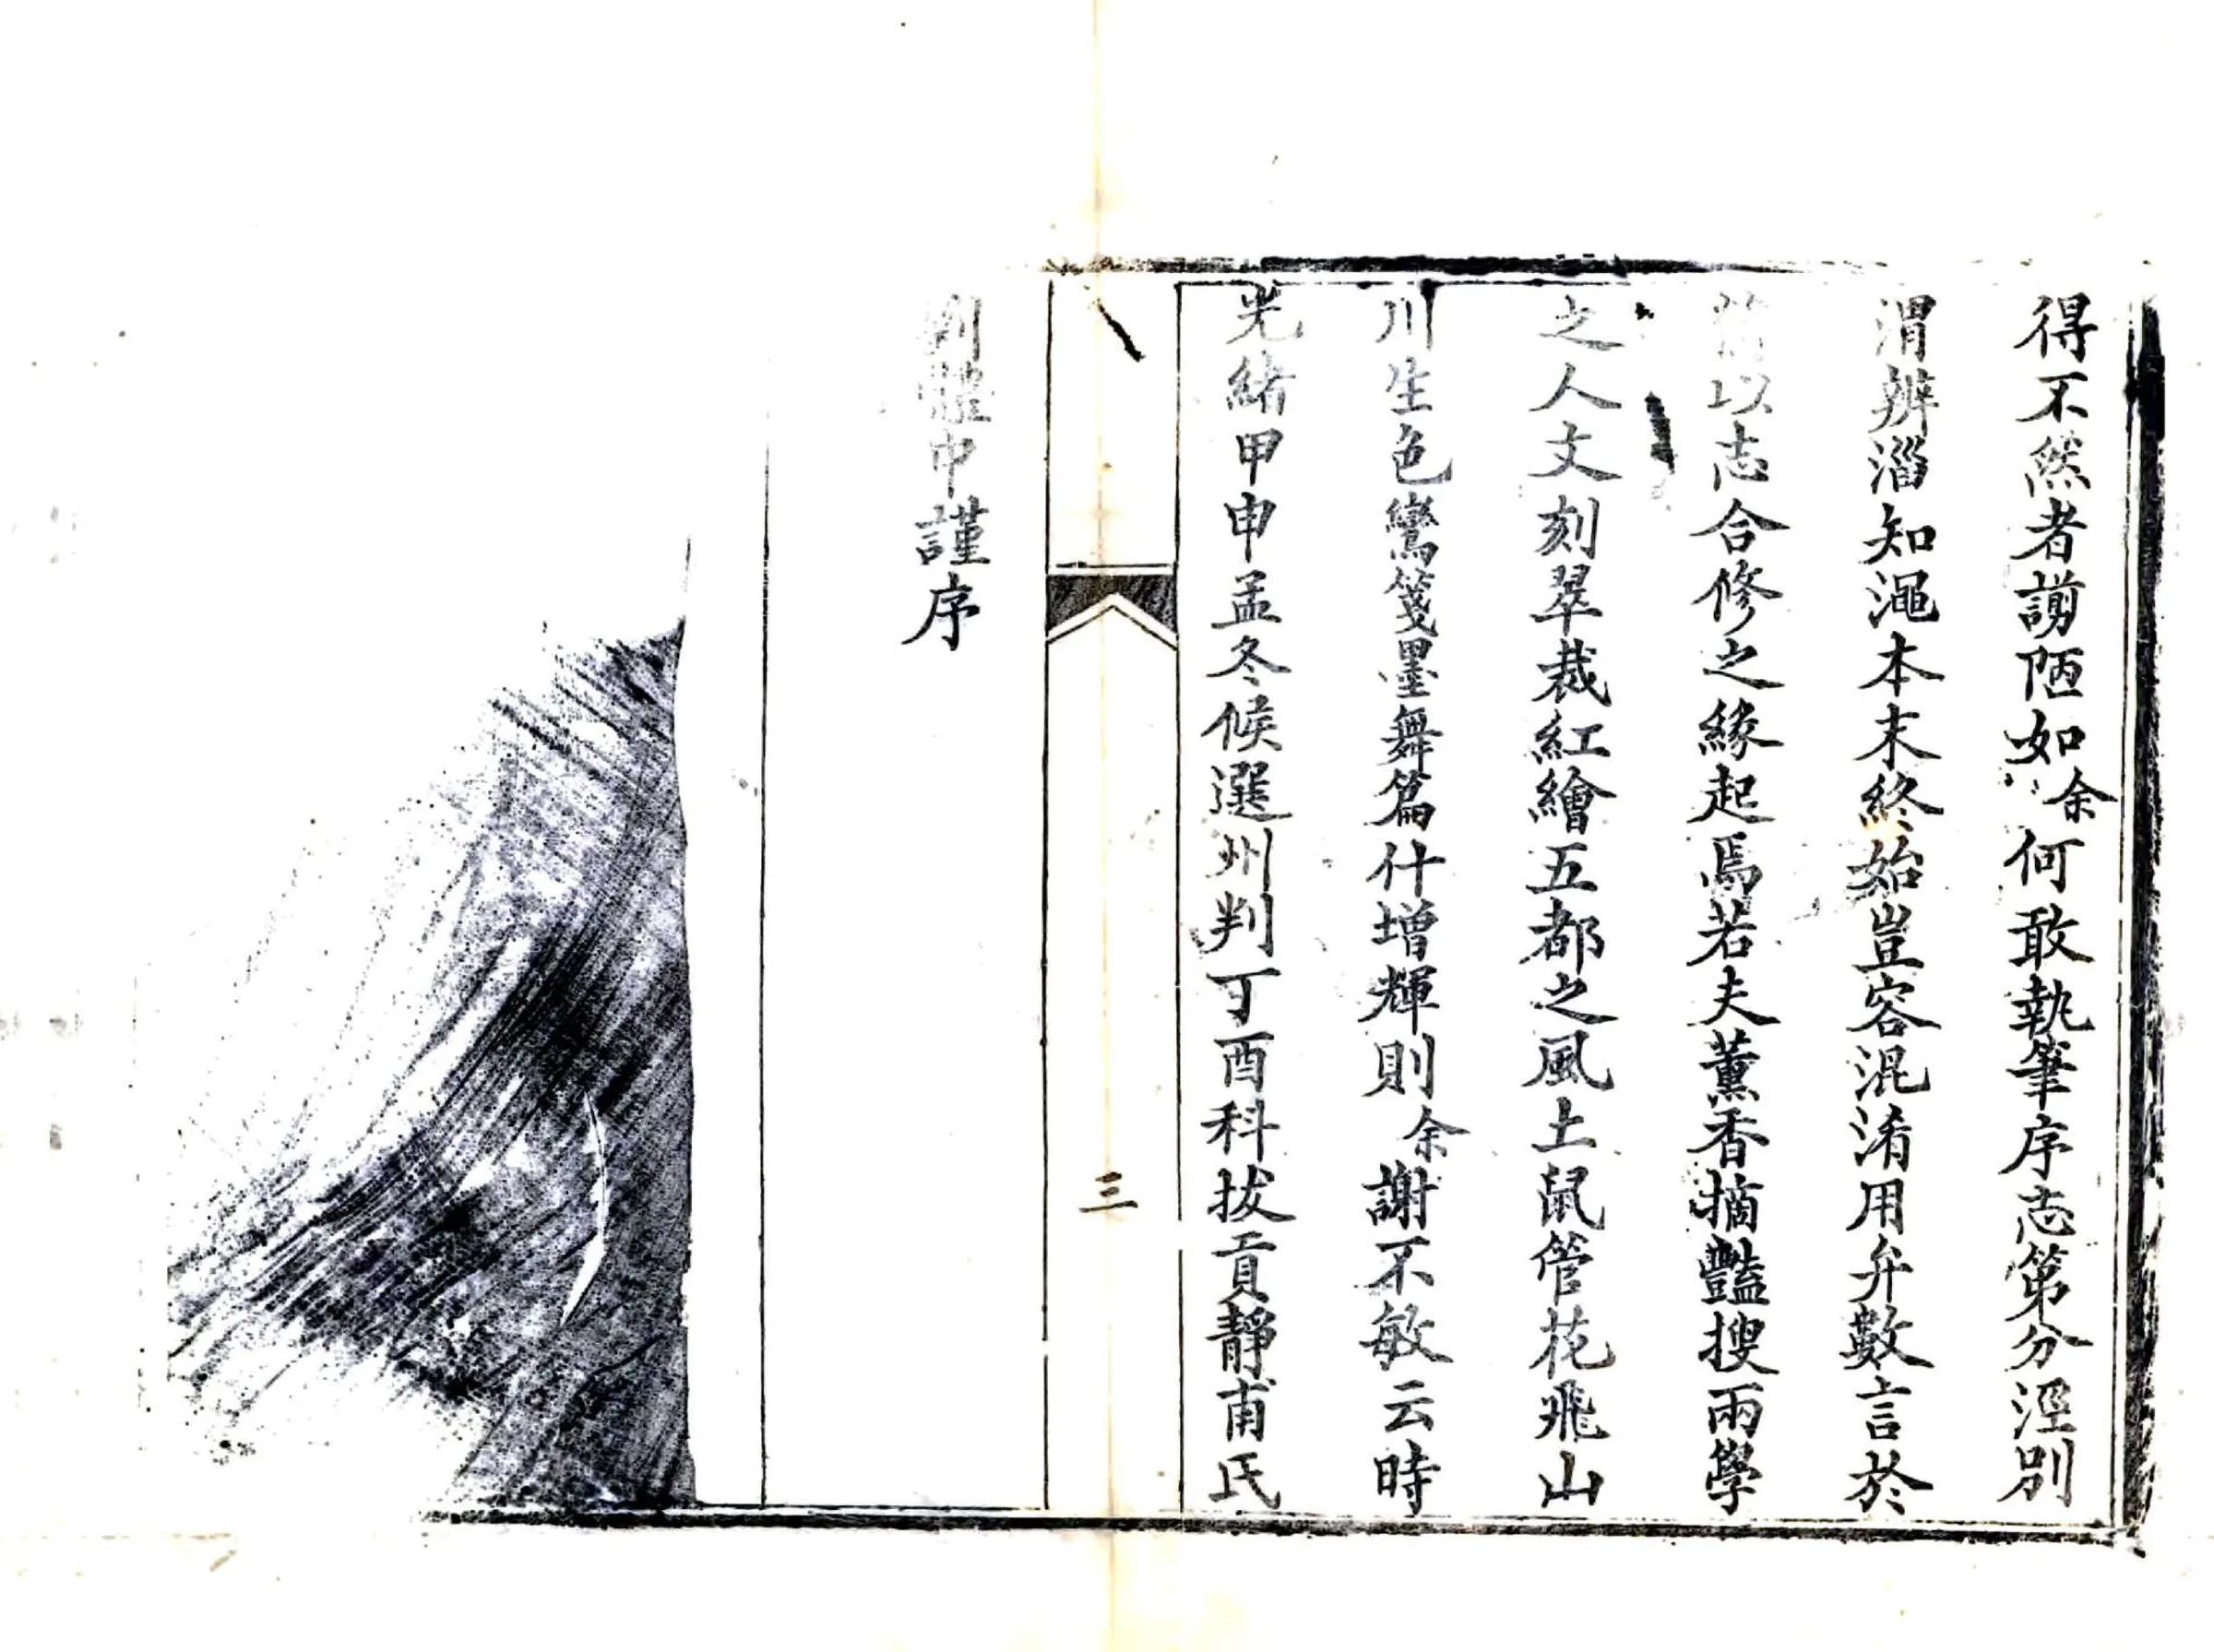 得不然者謭陋如余何敢執筆序志第分涇別
渭辨淄知澠本末終始豈容混淆用弁數言於
簡以志合修之緣起焉若夫薰香摘豔搜兩學
之人文刻翠裁紅繪五都之風土鼠管花飛山
川生色鸞箋墨舞篇什增輝則余謝不敏云時
光緒甲申孟冬候選州判丁酉科拔貢靜甫氏
三
劉體中謹序